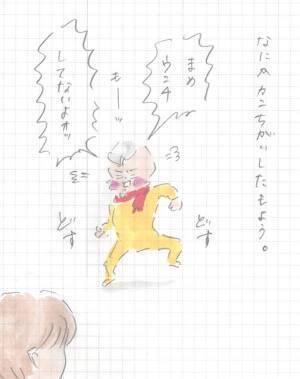 なにか カンちがいしたもよう。
まめ
ウンチ
もーッ
してないよオッ
どす
どす